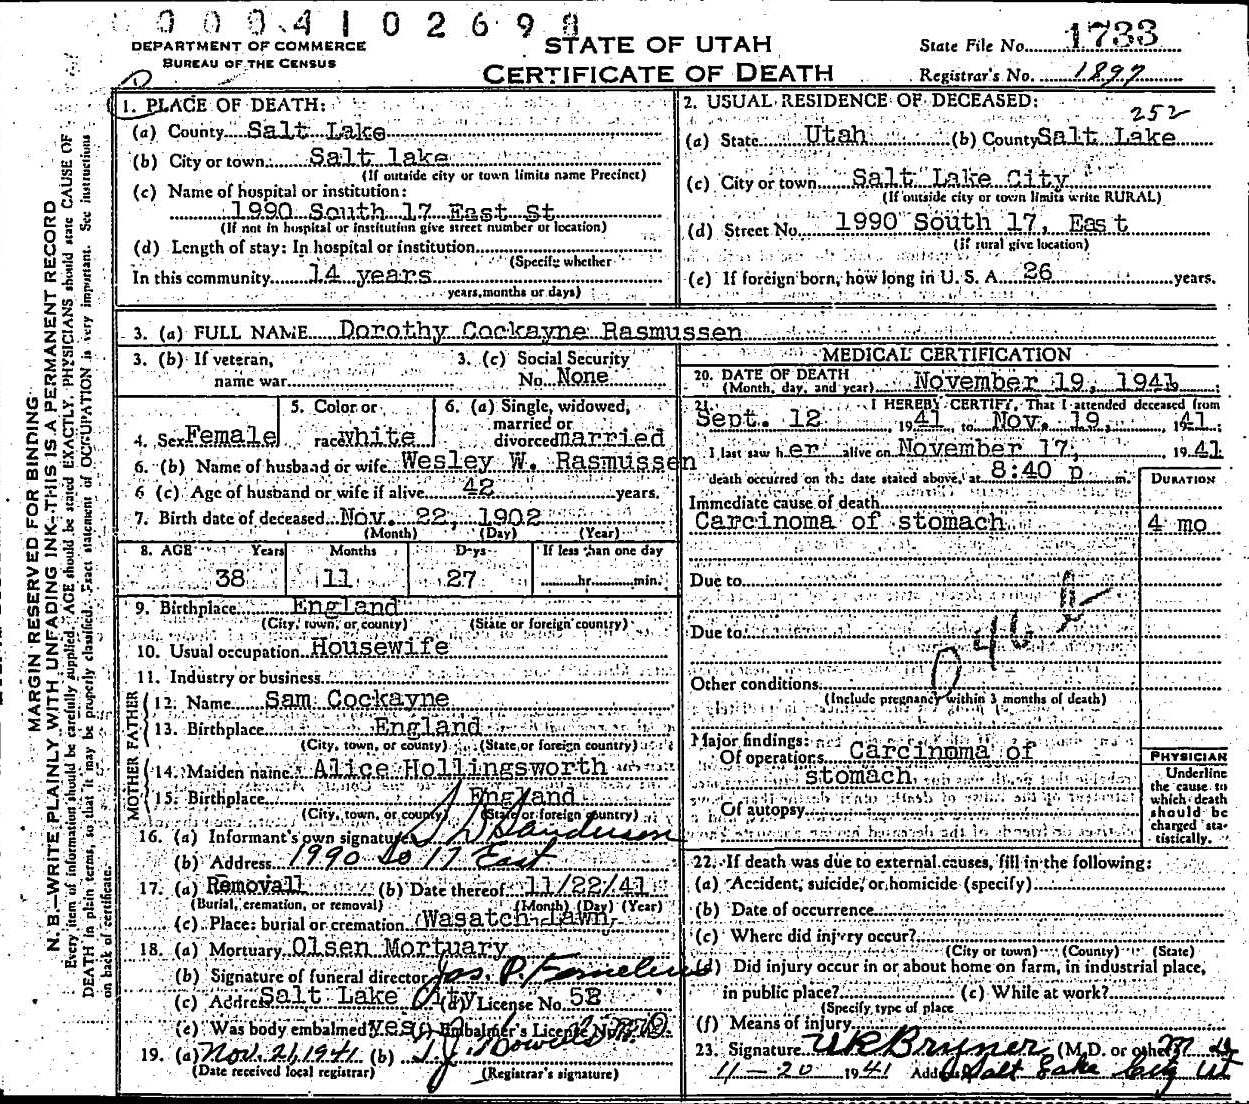 0 0 0 4 1 0 2 6 9 8
DEPARTMENT OF COMMERCE
BUREAU OF THE CENSUS
STATE OF UTAH
CERTIFICATE OF DEATH
State File No. 1733
Registrar's No. 1897
MARGIN RESERVED FOR BINDING
N. B.—WRITE PLAINLY WITH UNFADING INK—THIS IS A PERMANENT RECORD
Every item of information should be carefully supplied. AGE should be stated EXACTLY. PHYSICIANS should state CAUSE OF
DEATH in plain terms, so that it may be properly classified. Exact statement of OCCUPATION is very important. See instructions
on back of certificate.
1. PLACE OF DEATH:
(a) County Salt Lake
(b) City or town Salt lake
(If outside city or town limits name Precinct)
(c) Name of hospital or institution:
1990 South 17 East St
(If not in hospital or institution give street number or location)
(d) Length of stay: In hospital or institution
(Specify whether
In this community 14 years
years, months or days)
2. USUAL RESIDENCE OF DECEASED:
252
(a) State Utah (b) County Salt Lake
(c) City or town Salt Lake City
(If outside city or town limits write RURAL)
(d) Street No. 1990 South 17, East
(If rural give location)
(e) If foreign born, how long in U. S. A. 26 years.
3. (a) FULL NAME Dorothy Cockayne Rasmussen
3. (b) If veteran,
name war
3. (c) Social Security
No. None
4. Sex Female
5. Color or
race white
6. (a) Single, widowed,
married or
divorced married
6. (b) Name of husband or wife Wesley W. Rasmussen
6 (c) Age of husband or wife if alive 42 years.
7. Birth date of deceased Nov. 22, 1902
(Month) (Day) (Year)
8. AGE Years Months Days If less than one day
38 11 27 hr. min.
9. Birthplace England
(City, town, or county) (State or foreign country)
10. Usual occupation Housewife
11. Industry or business
FATHER
12. Name Sam Cockayne
13. Birthplace England
(City, town, or county) (State or foreign country)
MOTHER
14. Maiden name Alice Hollingsworth
15. Birthplace England
(City, town, or county) (State or foreign country)
16. (a) Informant's own signature S D Sanderson
(b) Address 1990 So 17 East
17. (a) Removall (b) Date thereof 11/22/41
(Burial, cremation, or removal) (Month) (Day) (Year)
(c) Place: burial or cremation Wasatch Lawn
18. (a) Mortuary Olsen Mortuary
(b) Signature of funeral director Jos. P.
(c) Address Salt Lake City (d) License No. 52
(e) Was body embalmed yes (f) Embalmer's License No.
19. (a) Nov. 21, 1941 (b)
(Date received local registrar) (Registrar's signature)
MEDICAL CERTIFICATION
20. DATE OF DEATH
(Month, day, and year) November 19, 1941
21. I HEREBY CERTIFY, That I attended deceased from
Sept. 12, 1941 to Nov. 19, 1941;
I last saw her alive on November 17, 1941
death occurred on the date stated above, at 8:40 p m.
DURATION
Immediate cause of death
Carcinoma of stomach 4 mo
Due to
Due to
046 b
Other conditions
(Include pregnancy within 3 months of death)
Major findings:
Of operations Carcinoma of
stomach
Of autopsy
PHYSICIAN
Underline
the cause to
which death
should be
charged sta-
tistically.
22. If death was due to external causes, fill in the following:
(a) Accident, suicide, or homicide (specify)
(b) Date of occurrence
(c) Where did injury occur?
(City or town) (County) (State)
(d) Did injury occur in or about home on farm, in industrial place,
in public place? (e) While at work?
(Specify type of place
(f) Means of injury
23. Signature W R Bryner (M.D. or other) M D
11-20 1941 Address Salt Lake City Ut